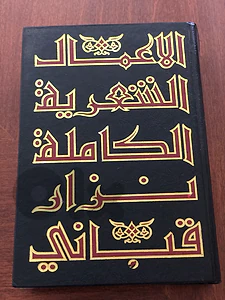 الأعمال
الشعرية
الكاملة
نزار
قباني